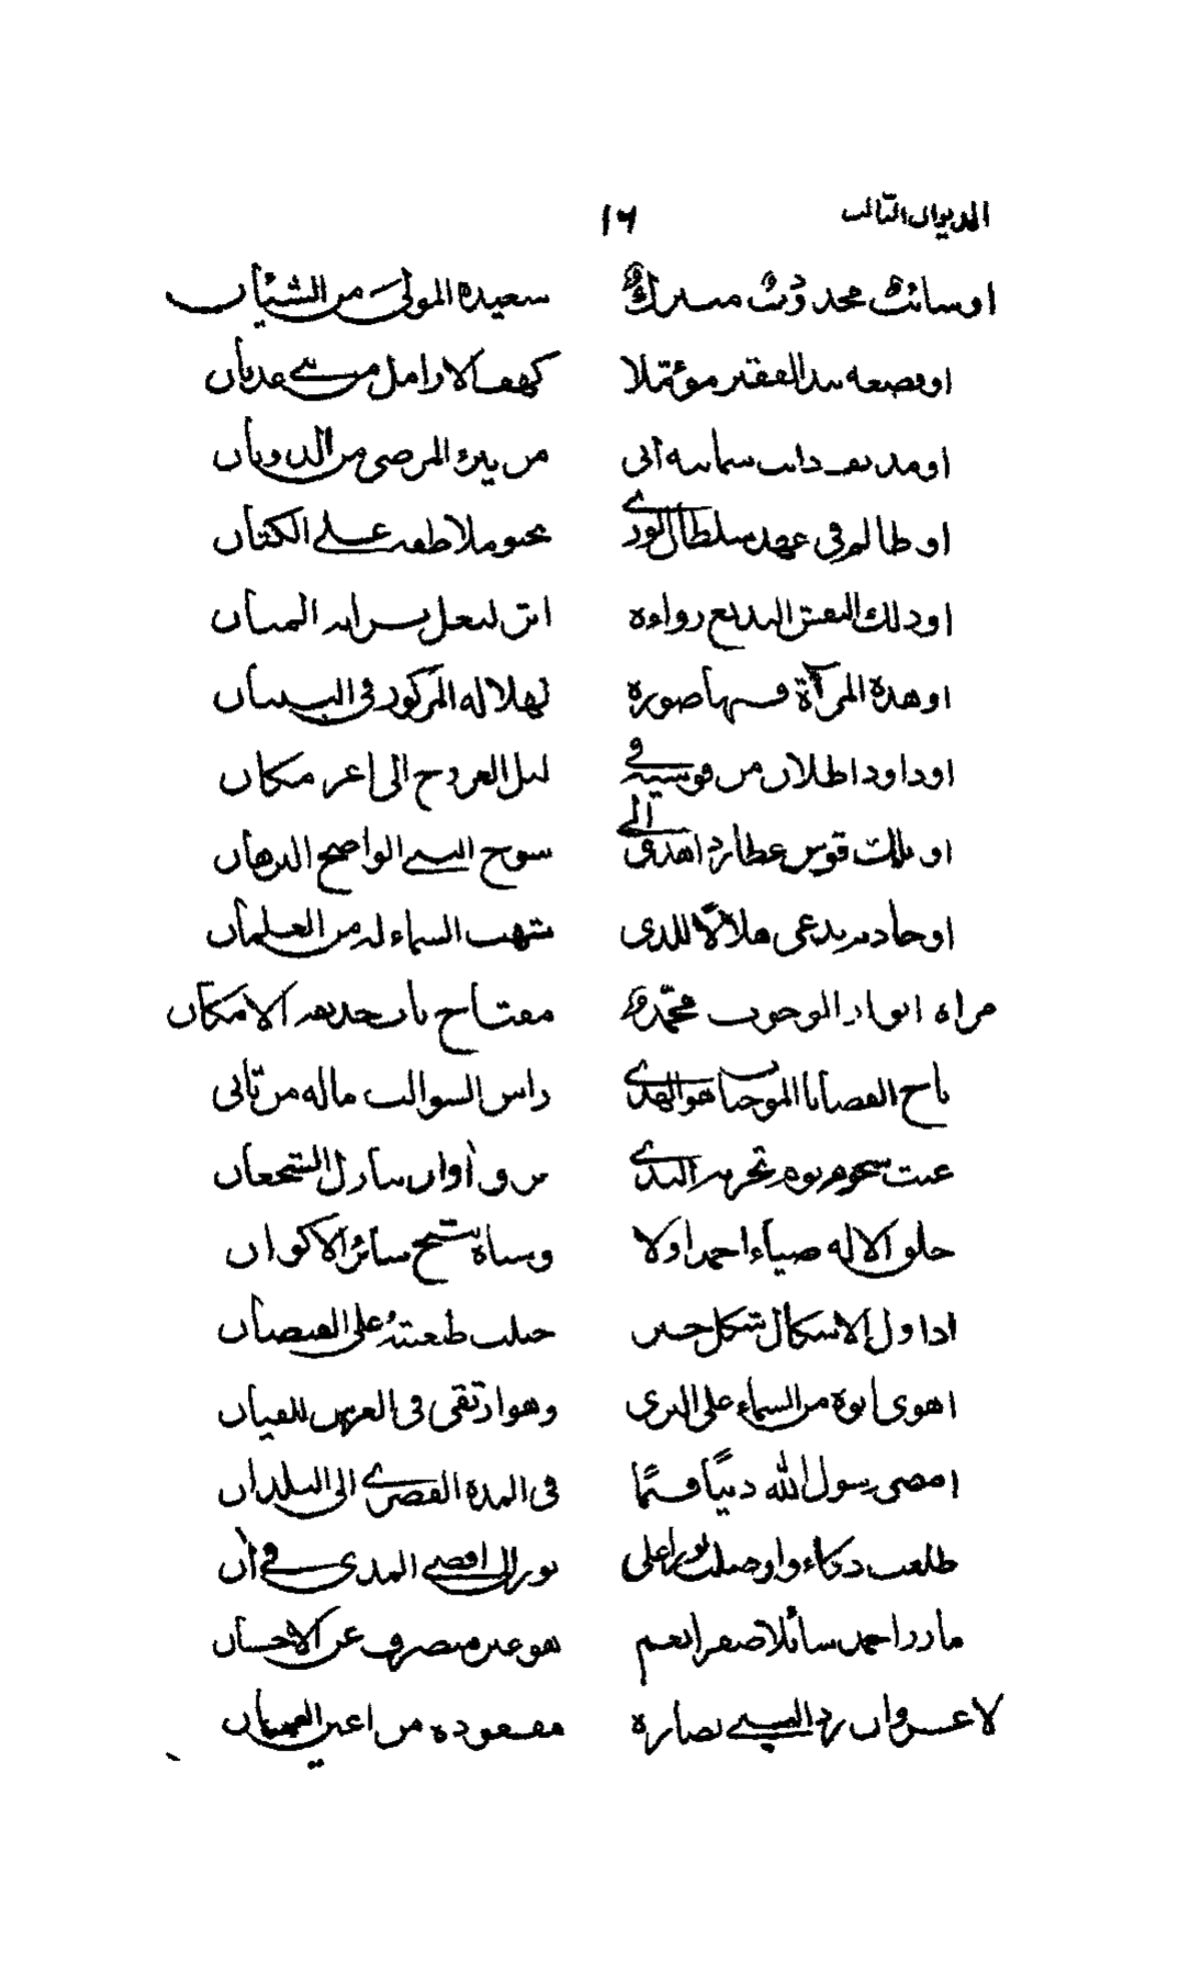 الديوان الثالث ١٦
او سائق محدودب متبرك سعيدة المولى من الشيبان
او قصعة بيد الفقير مؤملا كهف الارامل من بني عدنان
او مدنف ذابت سمانته أتى من يبرئ المرضى من الذوبان
او ظالم في عهد سلطان الورى يجنو ملاطفة على الكتان
او ذلك النقش البديع رواءه اثر لنعل براقه
او هذه المرآة فيها صورة لهلاله المركوز في
او داود اطلان من قوسيه في ليل العروج الى اعز مكان
او تلك قوس عطارد اهدى الى سوح النبي الواضح البرهان
او خادم يدعى هلالا للذي تهب السماء له من الغلمان
مرآة انوار الوجوب محمد مفتاح باب حديقة الامكان
تاج القضايا الموجبات هو الهدى راس السوالب ماله من ثاني
غيث نجوم نوه بحر الندى برق اوان تنازل الشجعان
خلق الاله ضياء احمد اولا وسناه ينتج سائر الاكوان
اذ اول الاشكال شكل حين جبلت طبيعته على الفيضان
اهوى ابوه من السماء على الثرى وهو ارتقى في العرش للقيان
امضى رسول الله دينا قيما في المدة القصرى الى البلدان
طلعت ذكاء واوصلت نورا على نور الى اقصى المدى في آن
ما رد احمد سائلا صفرا نعم هو غير منصرف عن الاحسان
لا غرو ان رد النبي نضارة مفقودة من اعين العميان